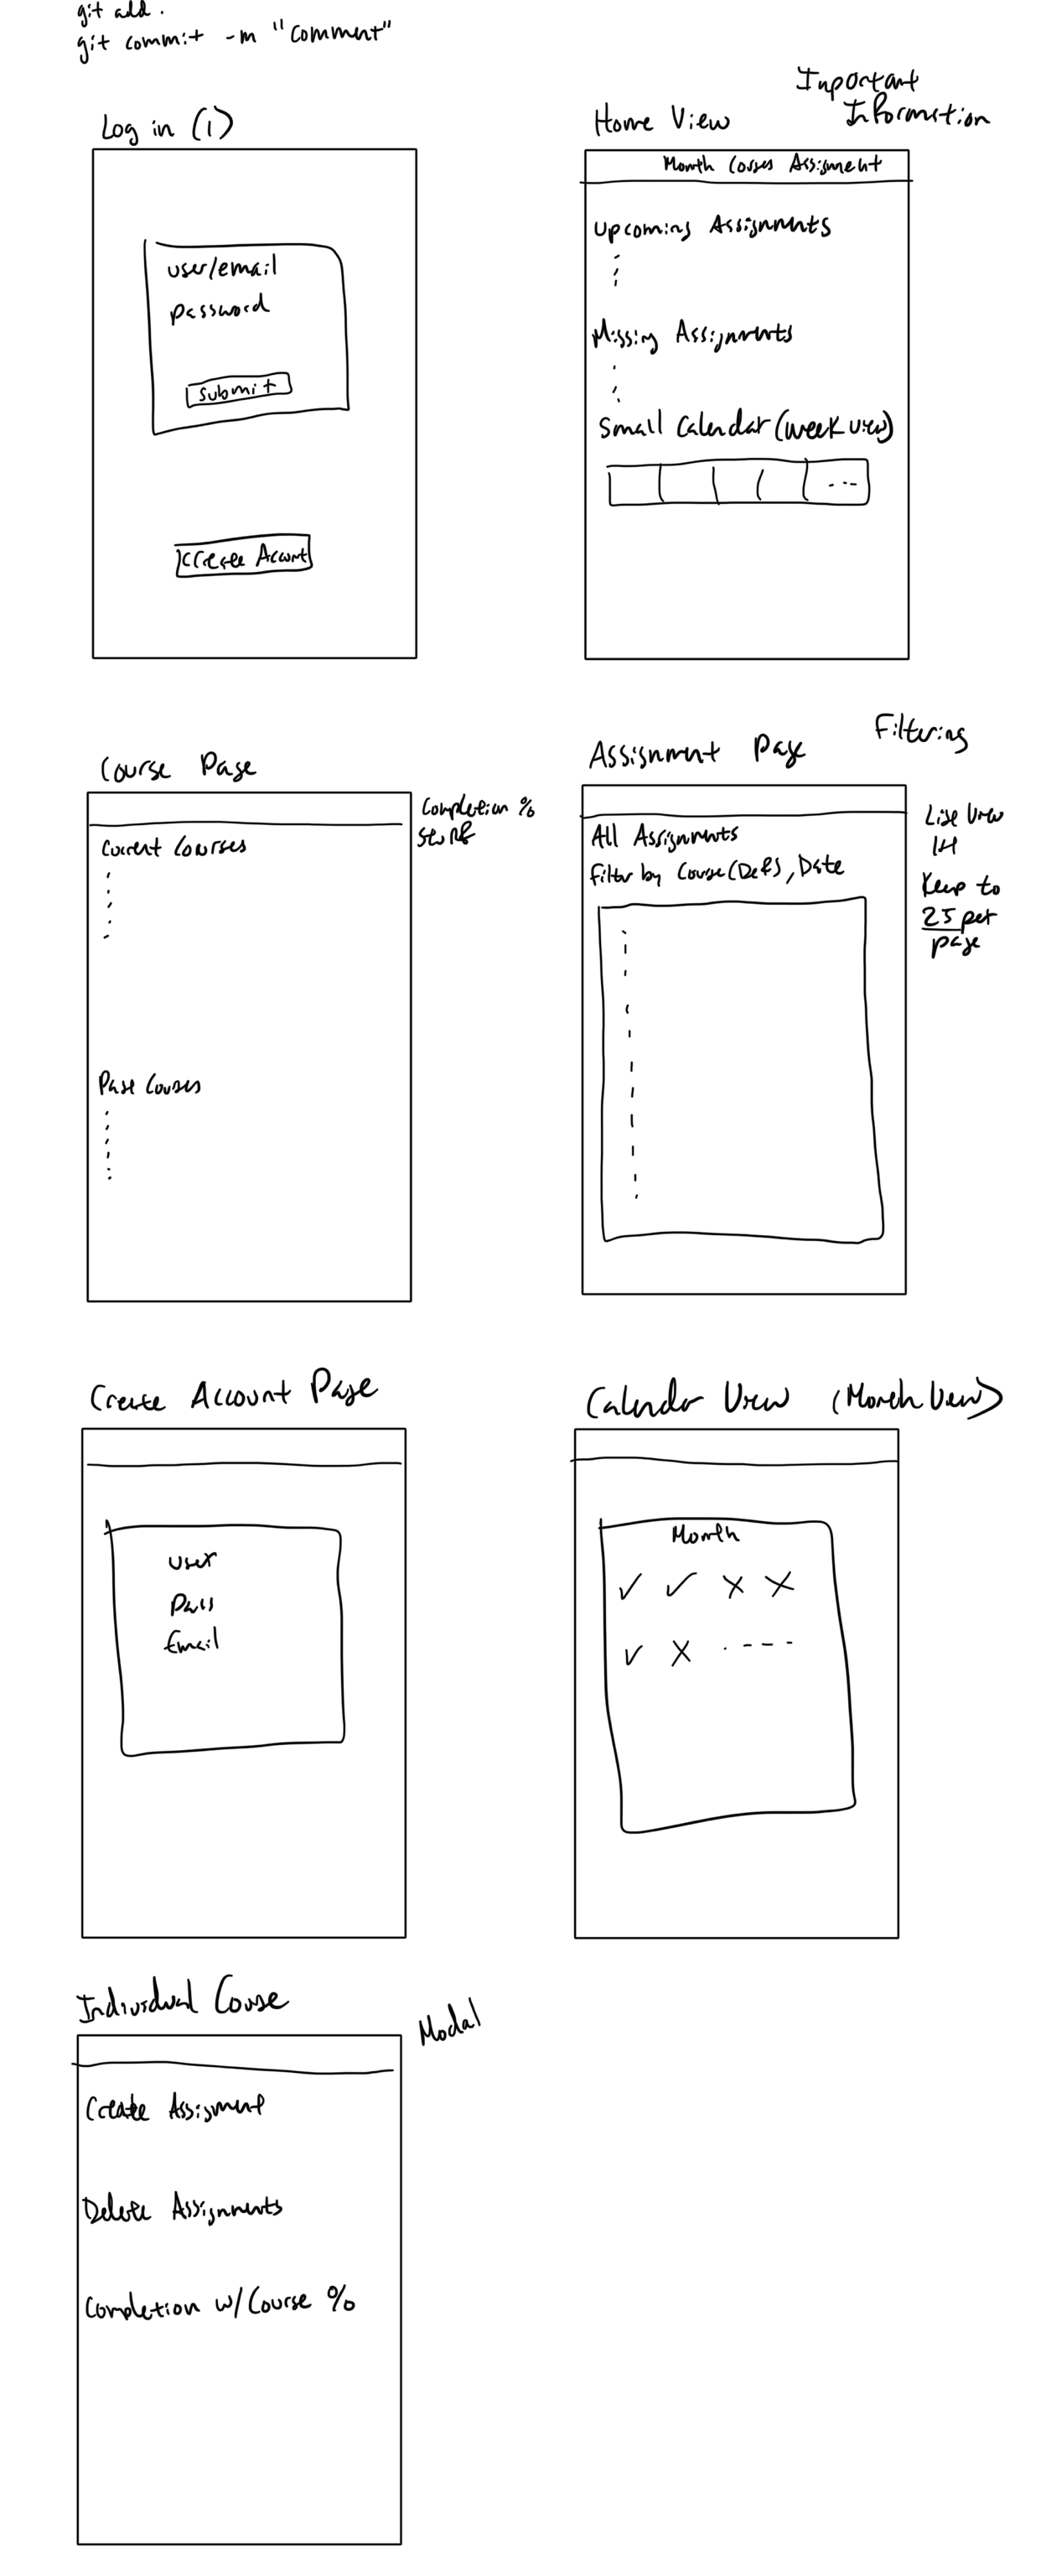 git add .
git commit -m "Comment"
Log in (1)
user/email
password
submit
Create Account
Home View
Important
Information
Month Courses Assignment
Upcoming Assignments
Missing Assignments
Small Calendar (week view)
---
Course Page
Completion %
stuff
Current Courses
Past Courses
Assignment Page
Filtering
All Assignments
Filter by Course (Def), Date
List View
Keep to
25 per
page
Create Account Page
user
Pass
Email
Calendar View (Month View)
Month
✓ ✓ X X
✓ X - - - -
Individual Course
Modal
Create Assignment
Delete Assignments
Completion w/ Course %